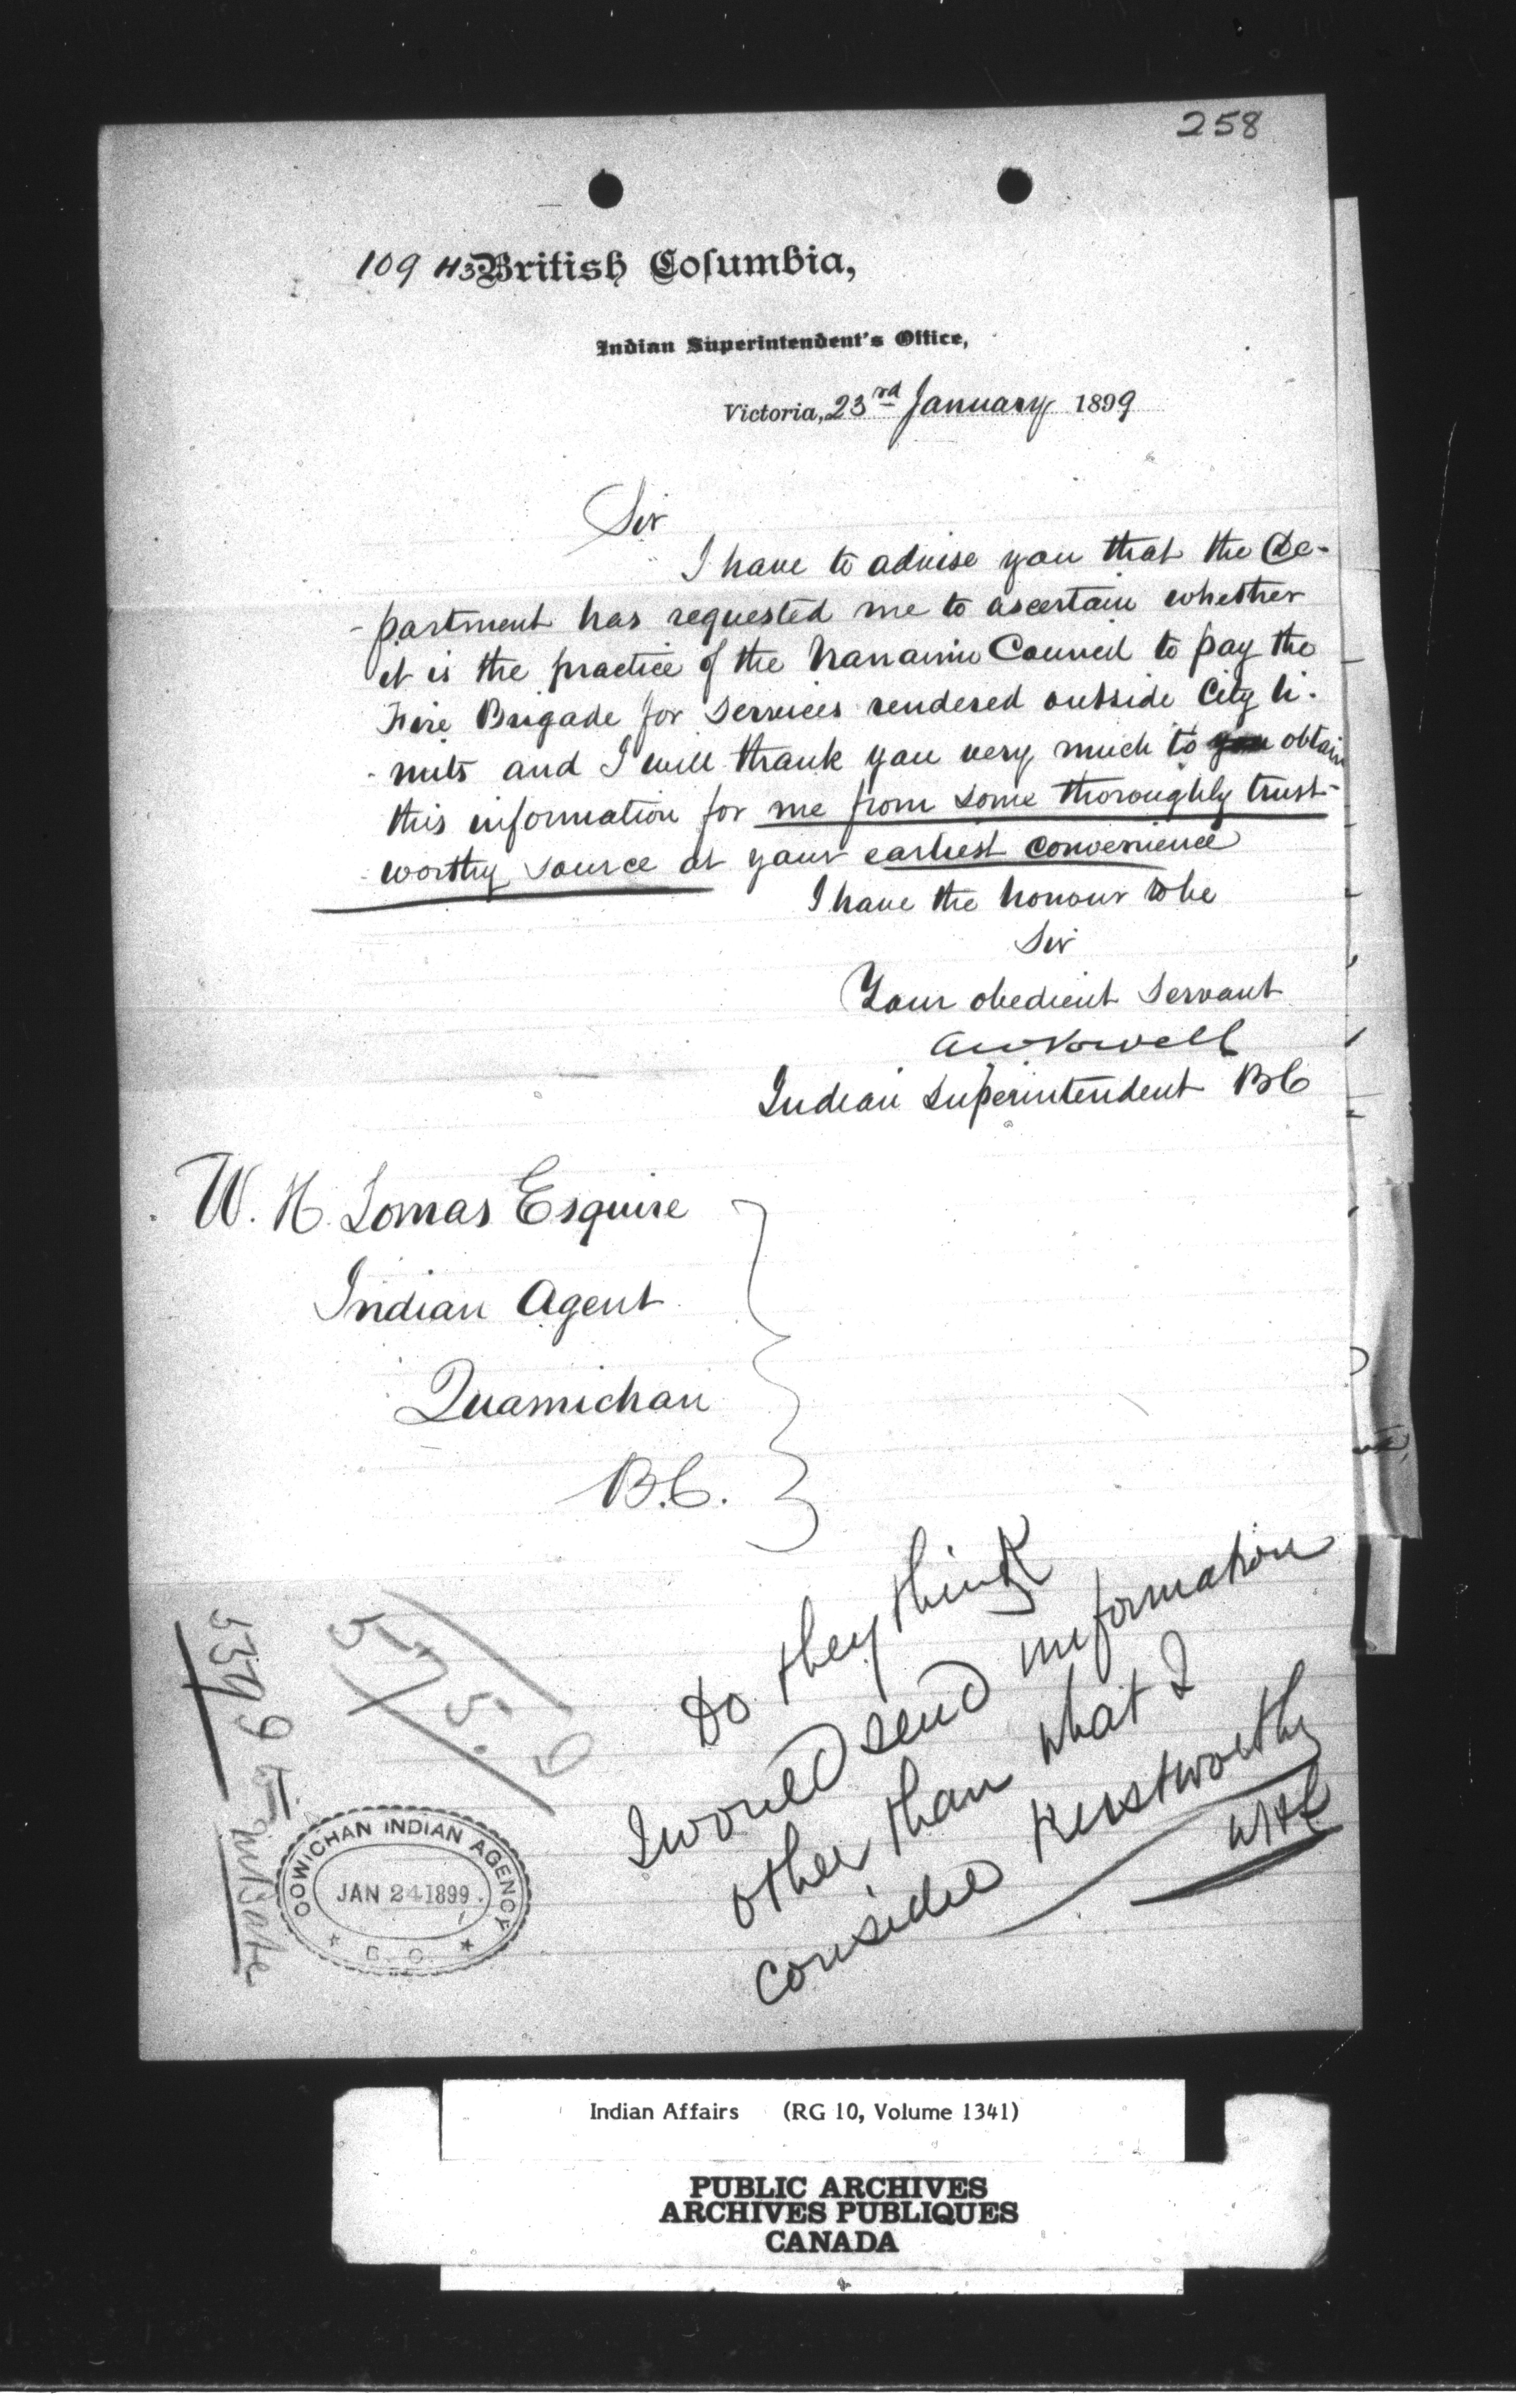 258
109 H3 British Columbia,
Indian Superintendent's Office,
Victoria, 23rd January 1899
Sir
I have to advise you that the De-
-partment has requested me to ascertain whether
it is the practice of the Nanaimo Council to pay the
Fire Brigade for services rendered outside City li-
-mits and I will thank you very much to you obtain
this information for me from some thoroughly trust-
worthy source at your earliest convenience
I have the honour to be
Sir
Your obedient Servant
A W Vowell
Indian Superintendent BC
W. H. Lomas Esquire
Indian Agent
Quamichan
B.C.
Do they think
I would send information
other than what I
consider trustworthy
WHL
COWICHAN INDIAN AGENCY
JAN 24 1899
B. C.
Indian Affairs (RG 10, Volume 1341)
PUBLIC ARCHIVES
ARCHIVES PUBLIQUES
CANADA